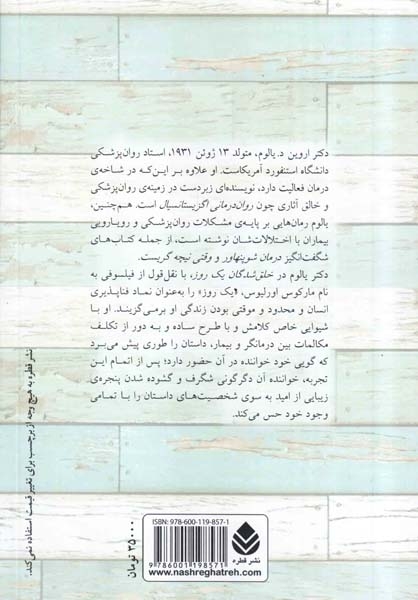 دکتر اروین د. یالوم، متولد ۱۳ ژوئن ۱۹۳۱، استاد روان‌پزشکی
دانشگاه استنفورد آمریکاست. او علاوه بر این‌که در شاخه‌ی
درمان فعالیت دارد، نویسنده‌ای زبردست در زمینه‌ی روان‌پزشکی
و خالق آثاری چون روان‌درمانی اگزیستانسیال است. هم‌چنین،
یالوم رمان‌هایی بر پایه‌ی مشکلات روان‌پزشکی و رویارویی
بیماران با اختلالات‌شان نوشته است، از جمله کتاب‌های
شگفت‌انگیز درمان شوپنهاور و وقتی نیچه گریست.
دکتر یالوم در خلق‌شدگان یک روز، با نقل‌قول از فیلسوفی به
نام مارکوس اورلیوس، «یک روز» را به‌عنوان نماد فناپذیری
انسان و محدود و موقتی بودن زندگی او برمی‌گزیند. او با
شیوایی خاص کلامش و با طرح ساده و به دور از تکلف
مکالمات بین درمانگر و بیمار، داستان را طوری پیش می‌برد
که گویی خود خواننده در آن حضور دارد؛ پس از اتمام این
تجربه، خواننده آن دگرگونی شگرف و گشوده شدن پنجره‌ی
زیبایی از امید به سوی شخصیت‌های داستان را با تمامی
وجود خود حس می‌کند.
نشر قطره به هیچ وجه از برچسب برای تغییر قیمت استفاده نمی‌کند.
۳۵۰۰۰ تومان
ISBN: 978-600-119-857-1
9 786001 198571
نشر قطره
www.nashreghatreh.com